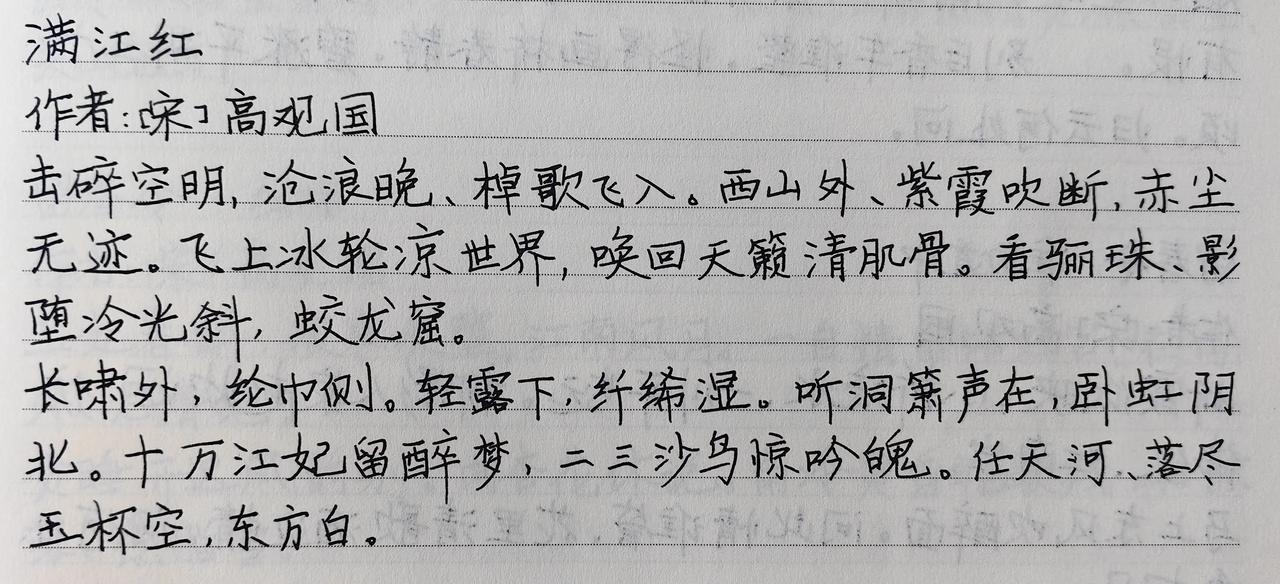 满江红
作者:[宋]高观国
击碎空明,沧浪晚、棹歌飞入。西山外、紫霞吹断,赤尘
无迹。飞上冰轮凉世界,唤回天籁清肌骨。看骊珠、影
堕冷光斜,蛟龙窟。
长啸外,纶巾侧。轻露下,纤絺湿。听洞箫声在,卧虹阴
北。十万江妃留醉梦,二三沙鸟惊吟魄。任天河、落尽
玉杯空,东方白。